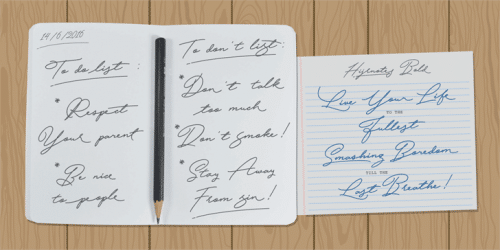 14/6/2016
To do list :
* Respect
Your parent
* Be nice
to people
To don't list :
* Don't talk
too much
* Don't Smoke !
* Stay Away
From sin !
Hypnotis Bold
Live Your Life
TO THE
Fullest
Smashing Boredom
TILL THE
Last Breathe !